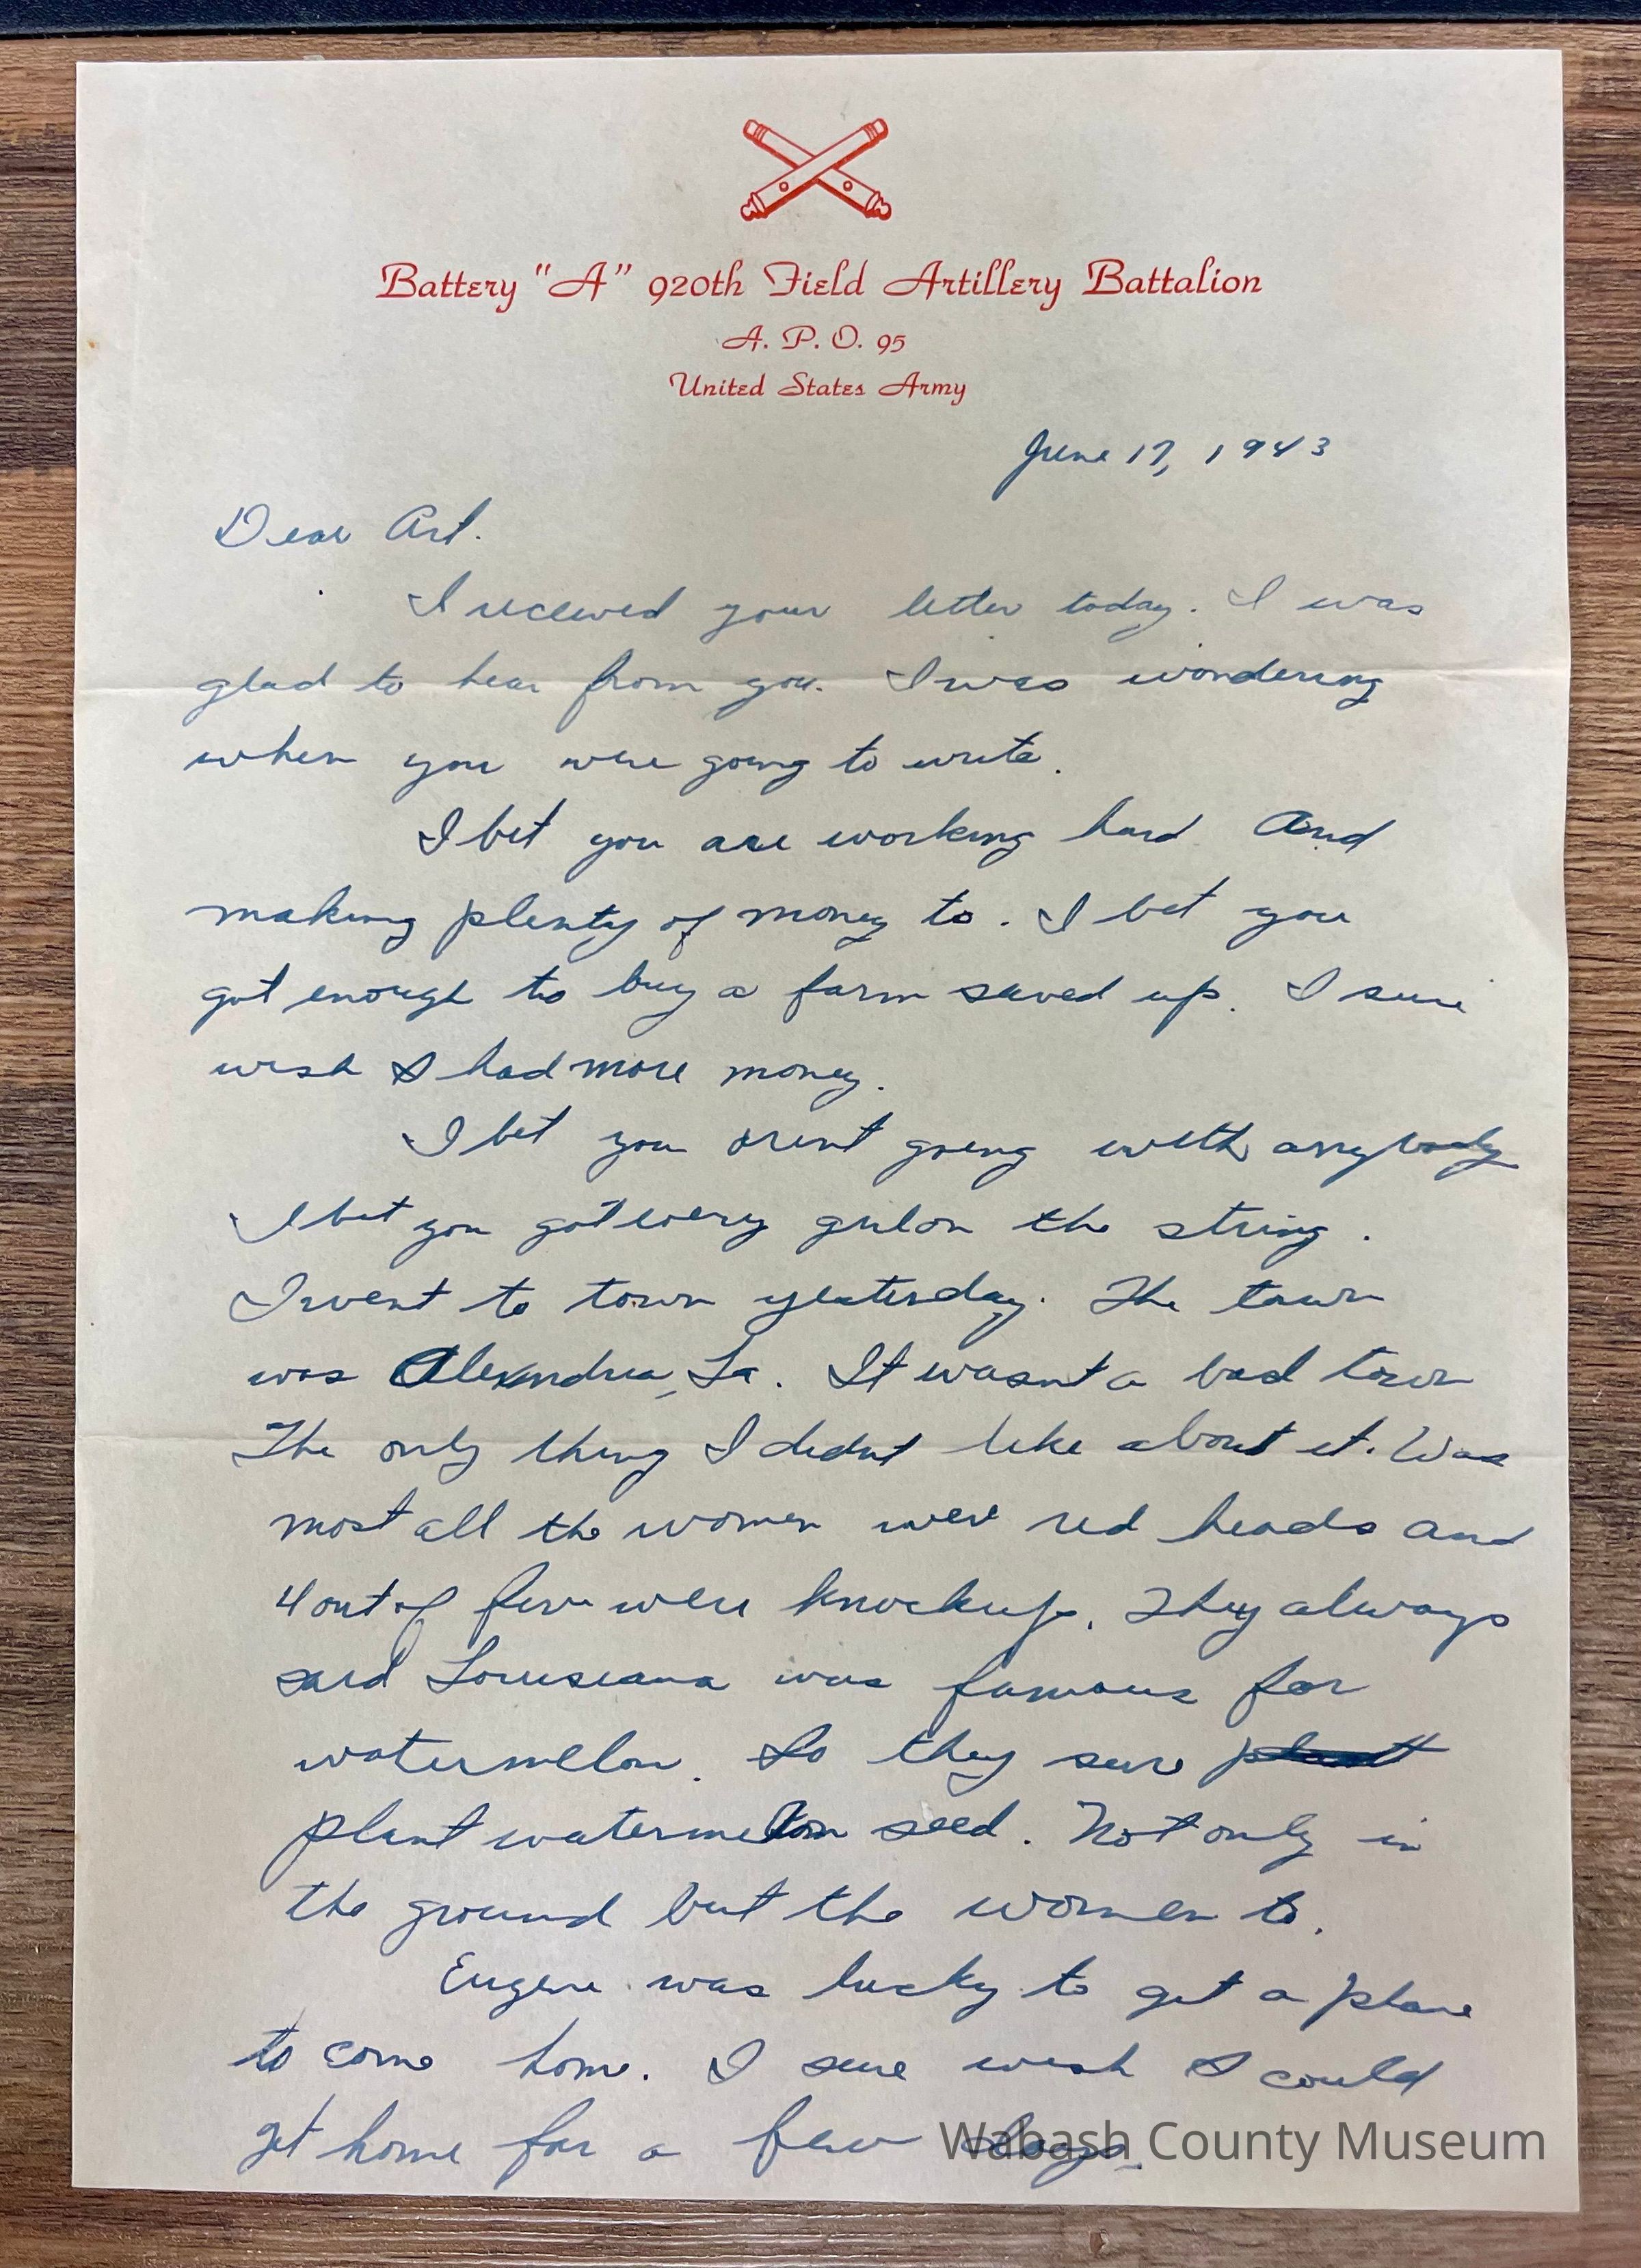 Battery "A" 920th Field Artillery Battalion
A. P. O. 95
United States Army
June 17, 1943
Dear Art.
I received your letter today. I was
glad to hear from you. I was wondering
when you were going to write.
I bet you are working hard And
making plenty of money to. I bet you
got enough to buy a farm saved up. I sure
wish I had more money.
I bet you arent going with anybody
I bet you got every girl on the string.
I went to town yesterday. The town
was Alexandria, La. It wasnt a bad town
The only thing I didnt like about it. Was
most all the women were red heads and
4 out of five were knockup. They always
said Louisiana was famous for
watermelon. So they sure plant
plant watermelon seed. Not only in
the ground but the women to.
Eugene was lucky to get a plane
to come home. I sure wish I could
get home for a few days.
Wabash County Museum